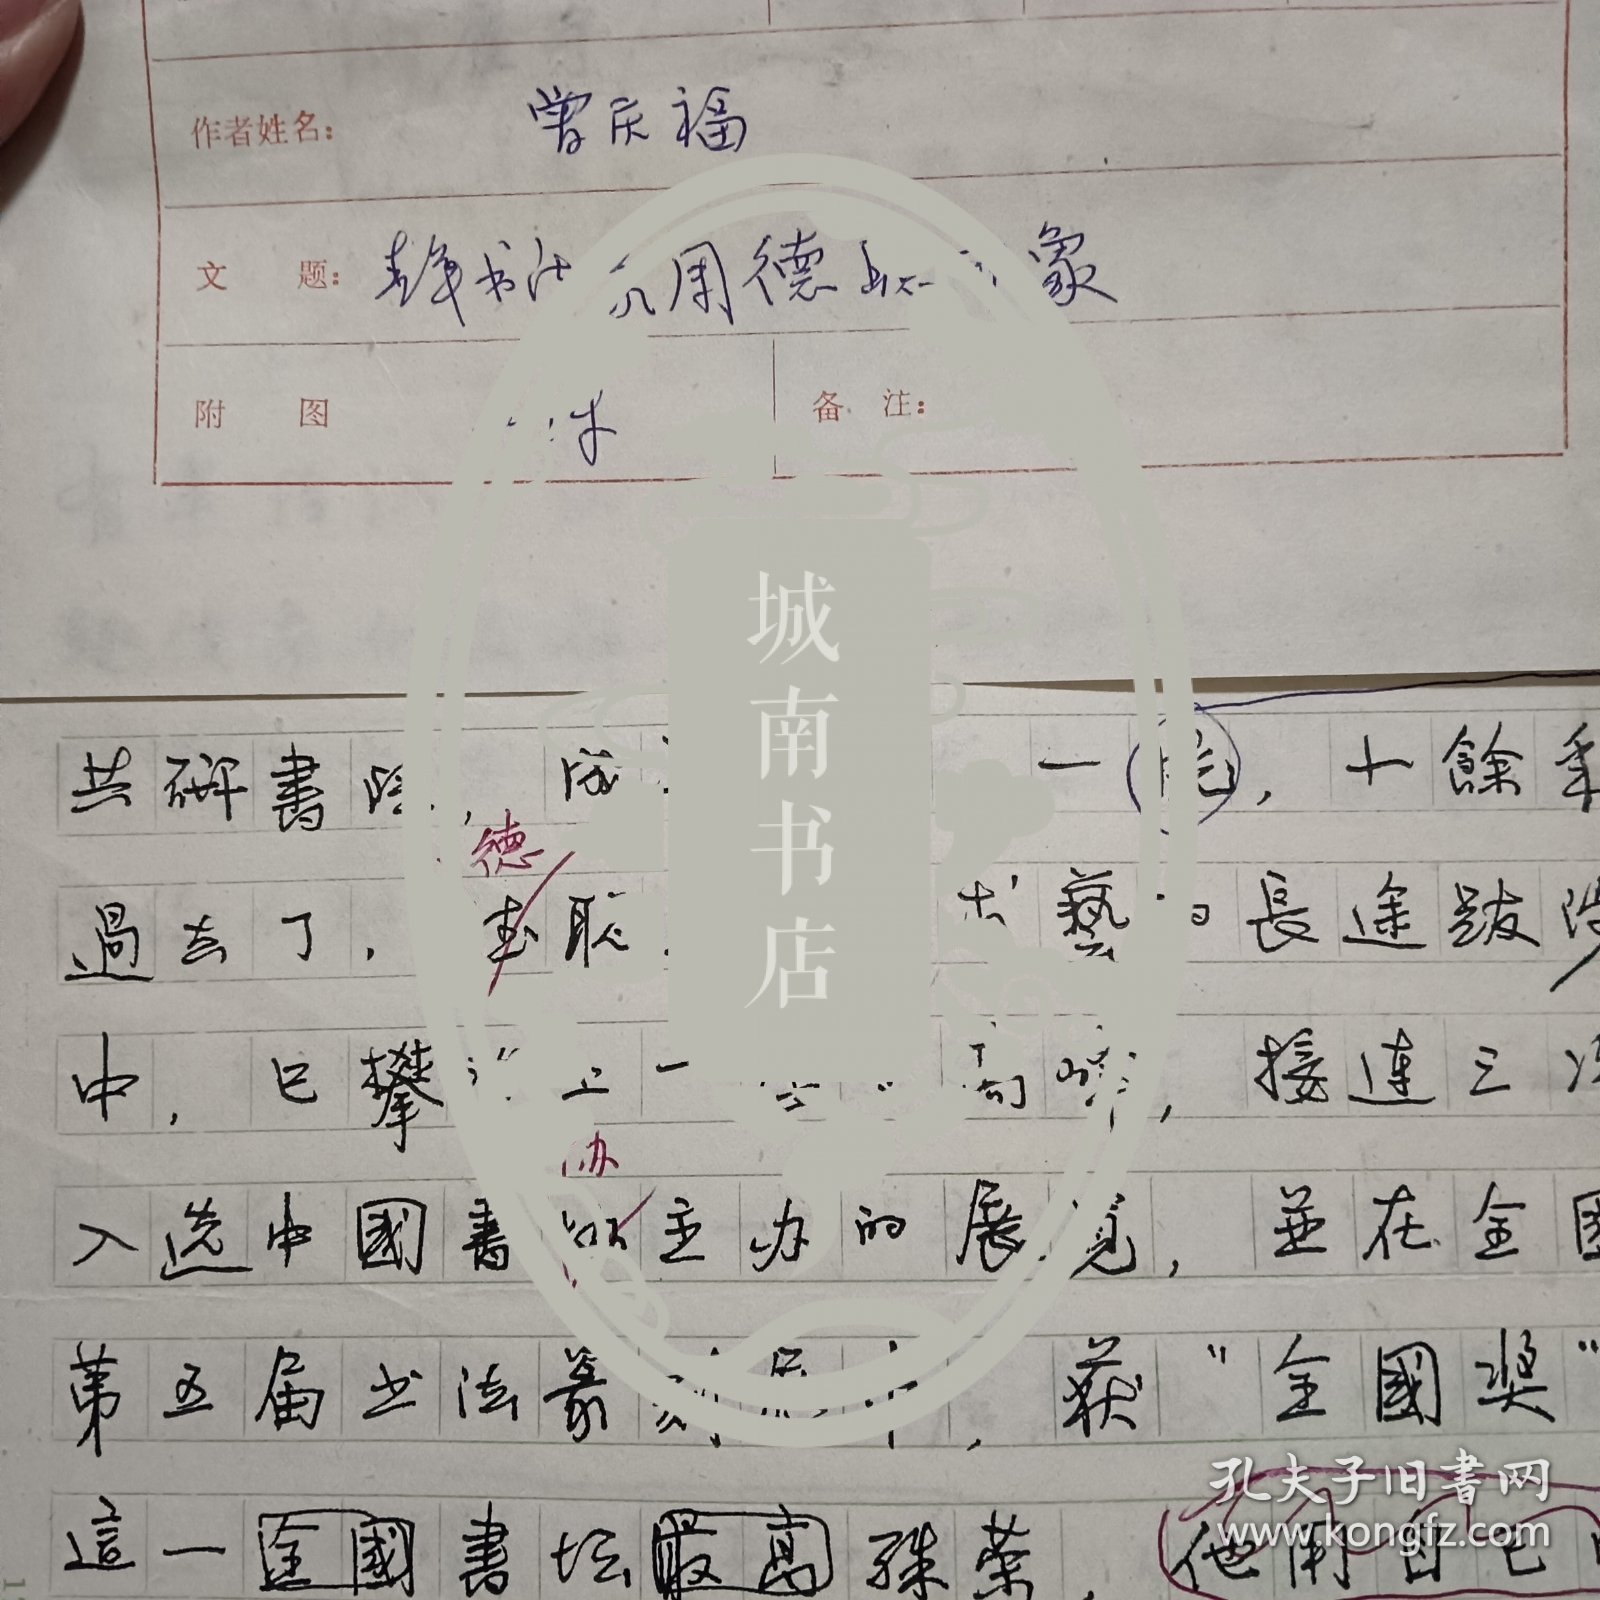 作者姓名： 曾庆福
文 题： 青年书法家周德聪印象
附 图
备 注：
城南书店
共研書 ，成 一 ，十餘年
德
過去了， 聪 藝的長途跋涉
中，已攀 上一 高峰，接連三次
协
入选中國書 主办的展览，並在全國
第五届书法篆刻展中，获“全國奖”
這一全國書坛最高殊荣，他用自己
孔夫子旧書网
www.kongfz.com